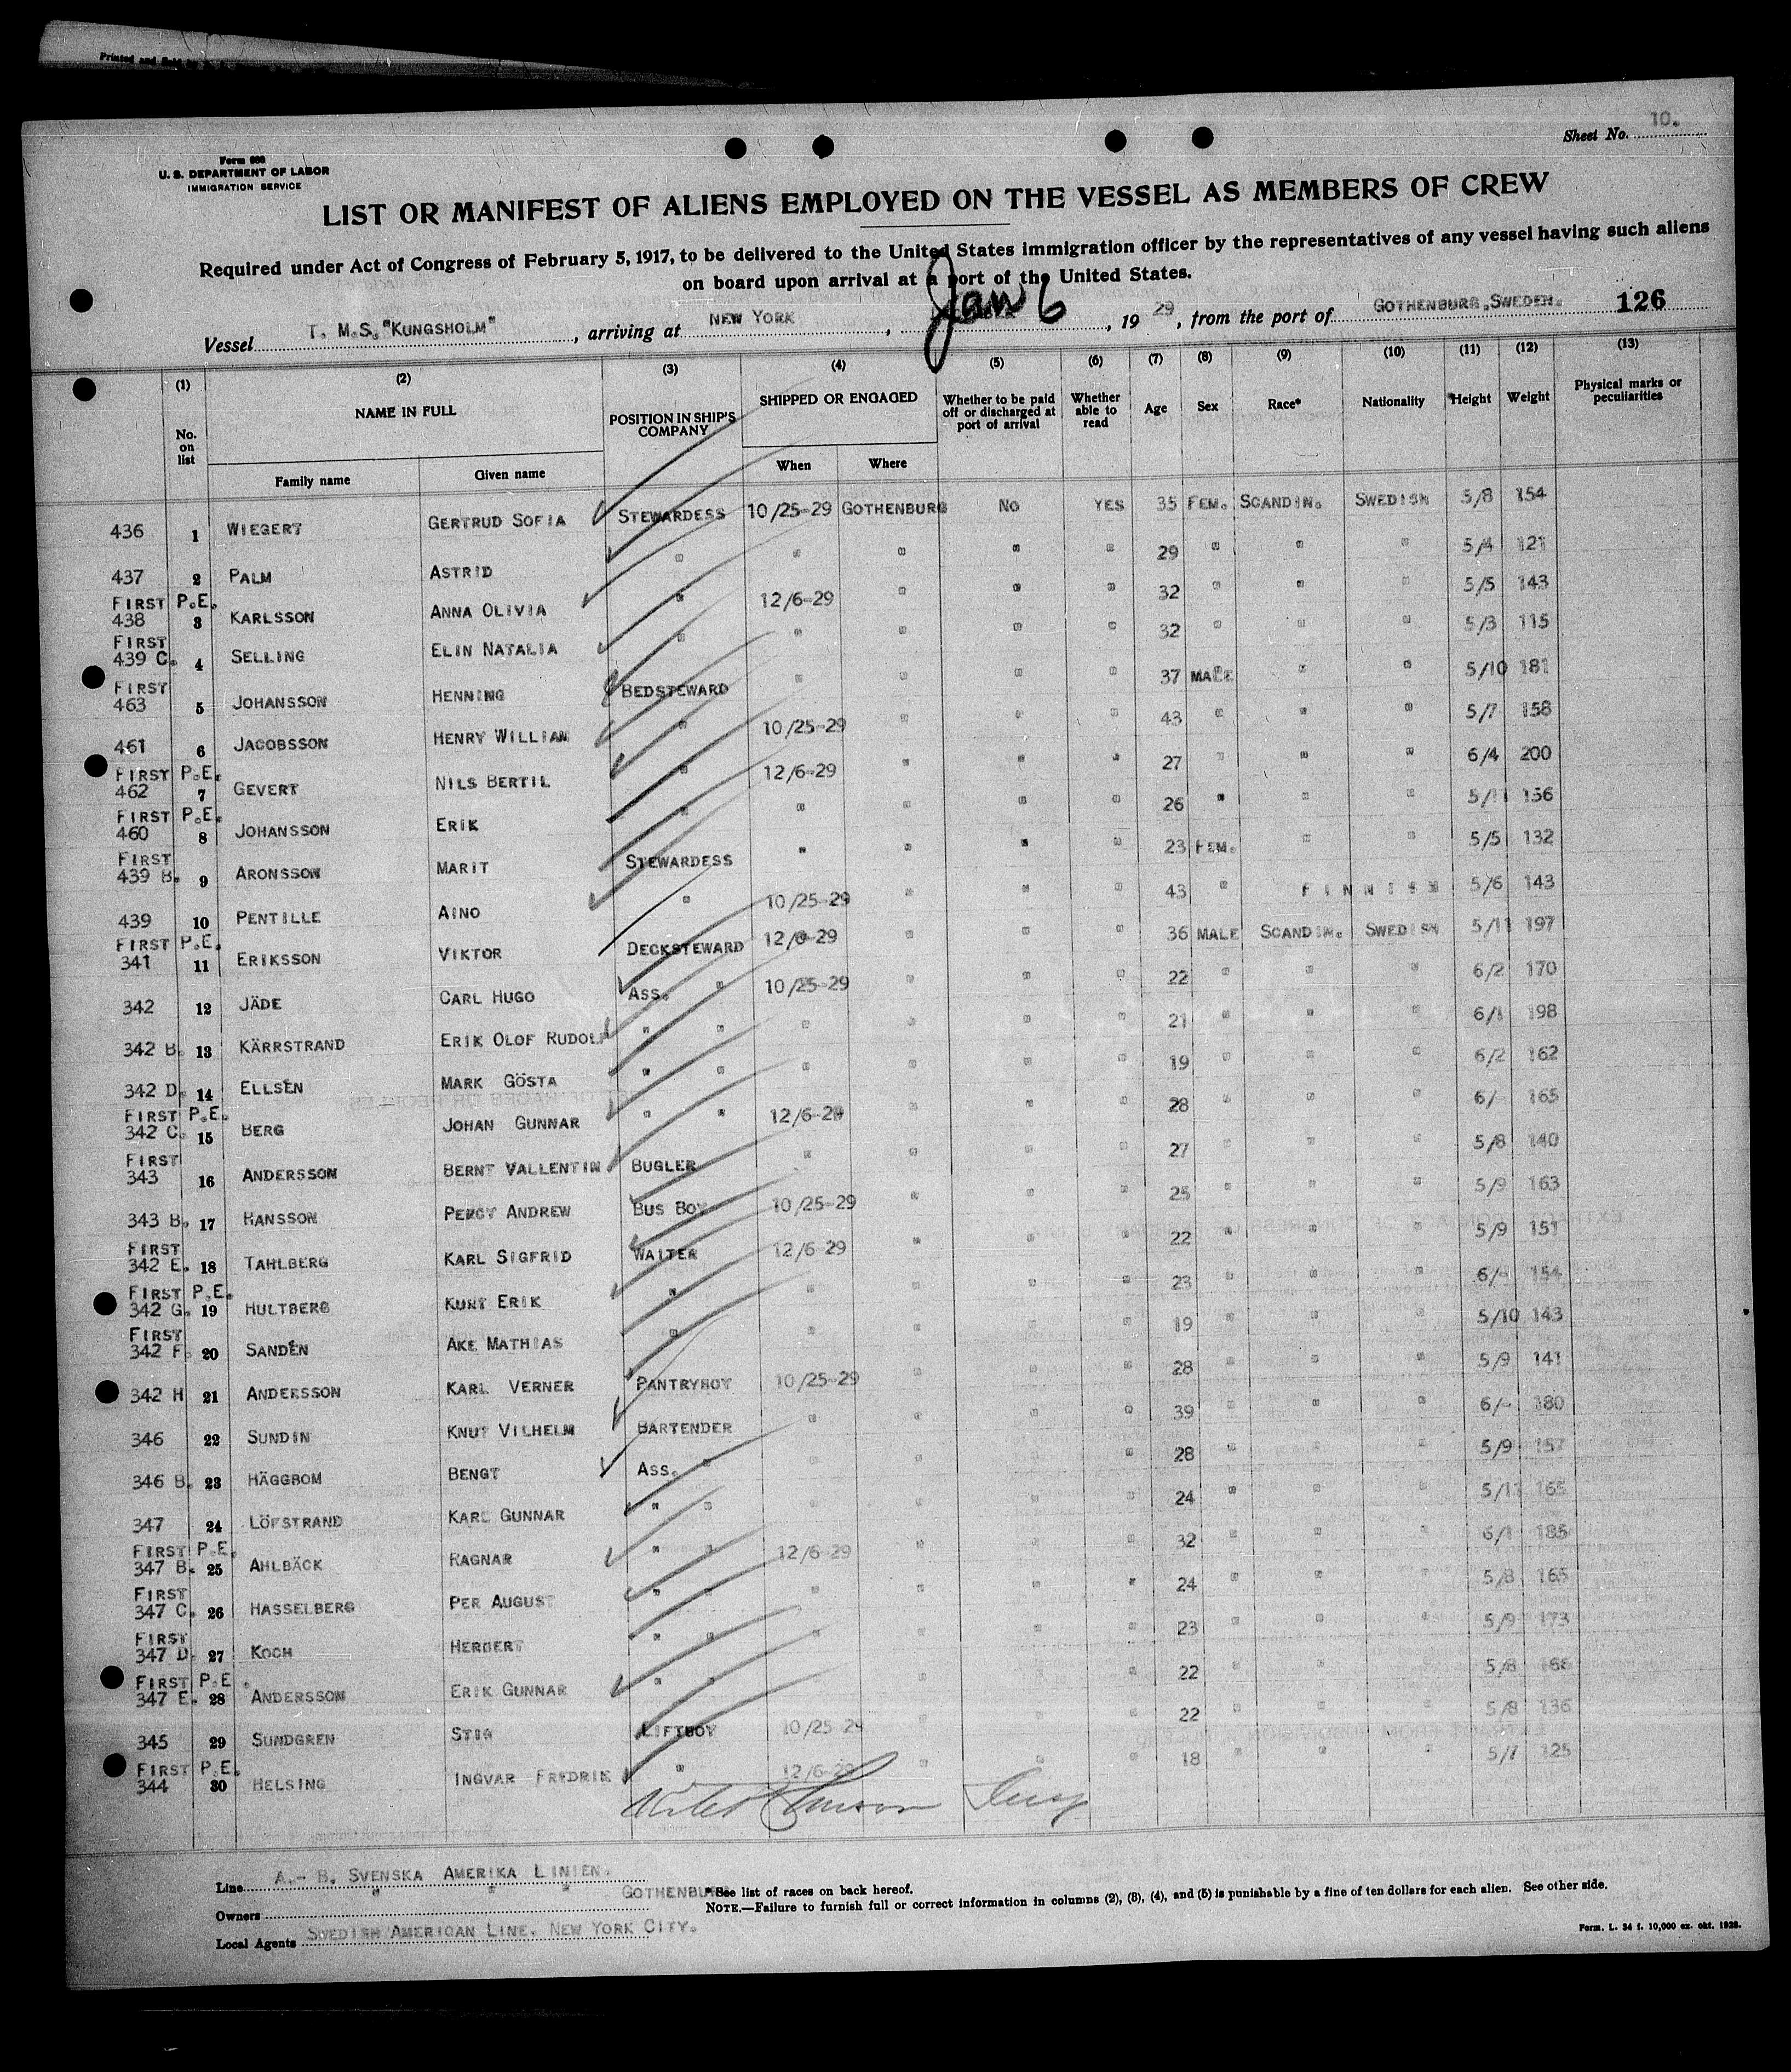 Printed and Sold
Sheet No. 10.
Form 680
U. S. DEPARTMENT OF LABOR
IMMIGRATION SERVICE
LIST OR MANIFEST OF ALIENS EMPLOYED ON THE VESSEL AS MEMBERS OF CREW
Required under Act of Congress of February 5, 1917, to be delivered to the United States immigration officer by the representatives of any vessel having such aliens
on board upon arrival at a port of the United States.
Vessel T. M.S. "KUNGSHOLM", arriving at NEW YORK, Jan 6, 1929, from the port of GOTHENBURG, SWEDEN. 126
(1) (2) (3) (4) (5) (6) (7) (8) (9) (10) (11) (12) (13)
No. on list NAME IN FULL POSITION IN SHIP'S COMPANY SHIPPED OR ENGAGED Whether to be paid off or discharged at port of arrival Whether able to read Age Sex Race* Nationality *Height Weight Physical marks or peculiarities
Family name Given name When Where
436 1 WIEGERT GERTRUD SOFIA STEWARDESS 10/25-29 GOTHENBURG NO YES 35 FEM. SCANDIN. SWEDISH 5/8 154
437 2 PALM ASTRID " " " " " 29 " " " 5/4 121
FIRST P.E.
438 3 KARLSSON ANNA OLIVIA " 12/6-29 " " " 32 " " " 5/5 143
FIRST
439 C. 4 SELLING ELIN NATALIA " " " " " 32 " " " 5/3 115
FIRST
463 5 JOHANSSON HENNING BEDSTEWARD " " " " 37 MALE " " 5/10 181
461 6 JACOBSSON HENRY WILLIAM " 10/25-29 " " " 43 " " " 5/7 158
FIRST P.E.
462 7 GEVERT NILS BERTIL " 12/6-29 " " " 27 " " " 6/4 200
FIRST P.E.
460 8 JOHANSSON ERIK " " " " 26 " " " 5/11 156
FIRST
439 B. 9 ARONSSON MARIT STEWARDESS " " " " 23 FEM. " " 5/5 132
439 10 PENTILLE AINO " 10/25-29 " " " 43 " FINNISH 5/6 143
FIRST P.E.
341 11 ERIKSSON VIKTOR DECKSTEWARD 12/6-29 " " " 36 MALE SCANDIN. SWEDISH 5/11 197
342 12 JÄDE CARL HUGO ASS. " 10/25-29 " " " 22 " " " 6/2 170
342 B. 13 KÄRRSTRAND ERIK OLOF RUDOLF " " " " " " 21 " " " 6/1 198
342 D. 14 ELLSÉN MARK GÖSTA " " " " " " 19 " " " 6/2 162
FIRST P.E.
342 C. 15 BERG JOHAN GUNNAR " " 12/6-29 " " " 28 " " " 6/- 165
FIRST
343 16 ANDERSSON BERNT VALLENTIN BUGLER " " " " 27 " " " 5/8 140
343 B. 17 HANSSON PERCY ANDREW BUS BOY 10/25-29 " " " 25 " " " 5/9 163
FIRST
342 E. 18 TAHLBERG KARL SIGFRID WAITER 12/6-29 " " " 22 " " " 5/9 151
FIRST P.E.
342 G. 19 HULTBERG KURT ERIK " " " " " 23 " " " 6/- 154
FIRST
342 F. 20 SANDÉN AKE MATHIAS " " " " " 19 " " " 5/10 143
342 H 21 ANDERSSON KARL VERNER PANTRYBOY 10/25-29 " " " 28 " " " 5/9 141
346 22 SUNDIN KNUT VILHELM BARTENDER " " " " 39 " " " 6/- 180
346 B. 23 HÄGGBOM BENGT ASS. " " " " " 28 " " " 5/9 157
347 24 LÖFSTRAND KARL GUNNAR " " " " " " 24 " " " 5/11 165
FIRST P.E.
347 B. 25 AHLBÄCK RAGNAR " " 12/6-29 " " " 32 " " " 6/1 185
FIRST
347 C. 26 HASSELBERG PER AUGUST " " " " " " 24 " " " 5/8 165
FIRST
347 D. 27 KOCH HERBERT " " " " " " 23 " " " 5/9 173
FIRST P.E.
347 E. 28 ANDERSSON ERIK GUNNAR " " " " " 22 " " " 5/8 166
345 29 SUNDGREN STIG LIFTBOY 10/25 29 " " " 22 " " " 5/8 136
FIRST P.E.
344 30 HELSING INGVAR FREDRIK " 12/6-29 " " " 18 " " " 5/7 125
Line A.- B. SVENSKA AMERIKA LINIEN.
Owners " " " GOTHENBURG
Local Agents SWEDISH AMERICAN LINE, NEW YORK CITY.
*See list of races on back hereof.
NOTE.—Failure to furnish full or correct information in columns (2), (3), (4), and (5) is punishable by a fine of ten dollars for each alien. See other side.
Form. L. 34 f. 10,000 ex. okt. 1928.